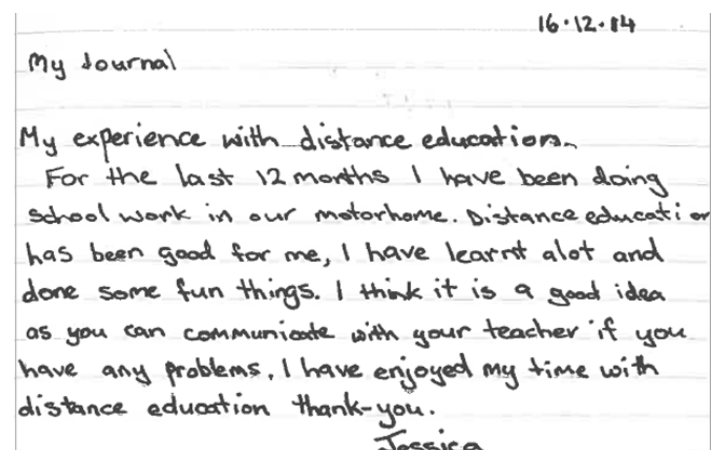 16.12.14
My Journal
My experience with distance education.
For the last 12 months I have been doing
school work in our motorhome. Distance education
has been good for me, I have learnt alot and
done some fun things. I think it is a good idea
as you can communicate with your teacher if you
have any problems. I have enjoyed my time with
distance education thank-you.
Jessica